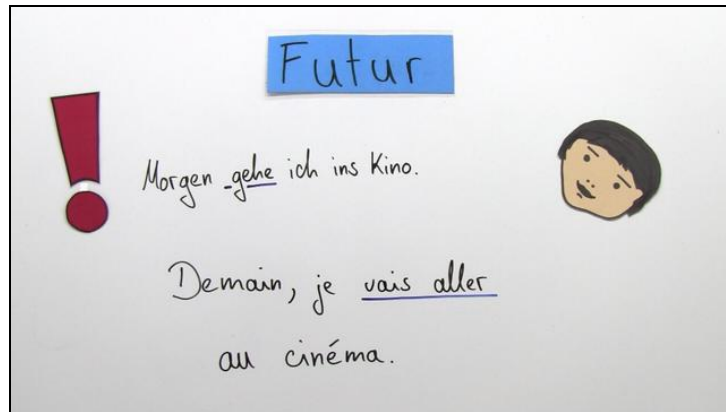 Futur
Morgen gehe ich ins Kino.
Demain, je vais aller
au cinéma.